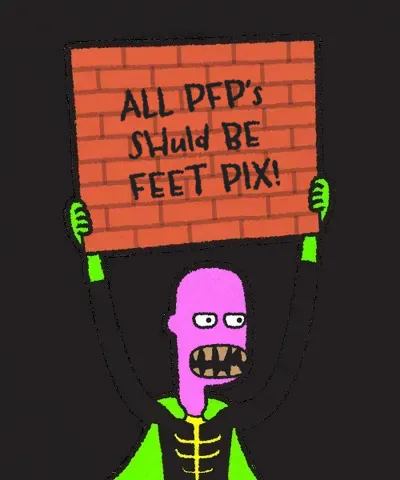 ALL PFP's
SHuld BE
FEET PIX!